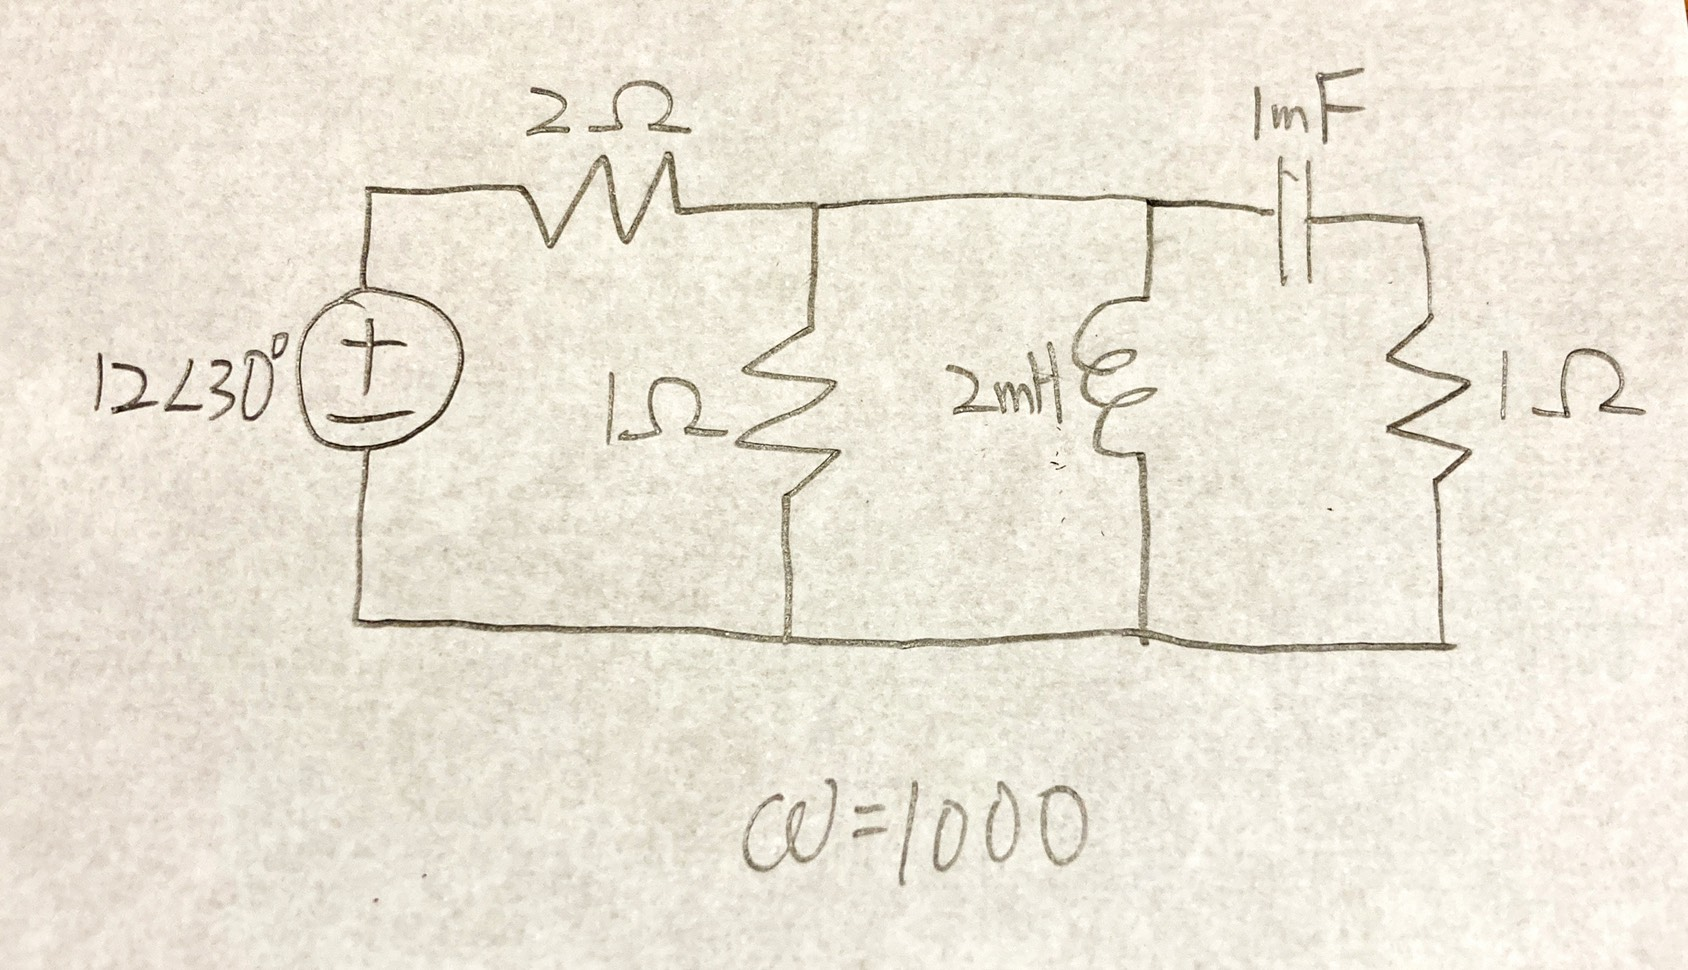 2 Ω
1mF
12∠30°
1Ω
2mH
1Ω
ω=1000